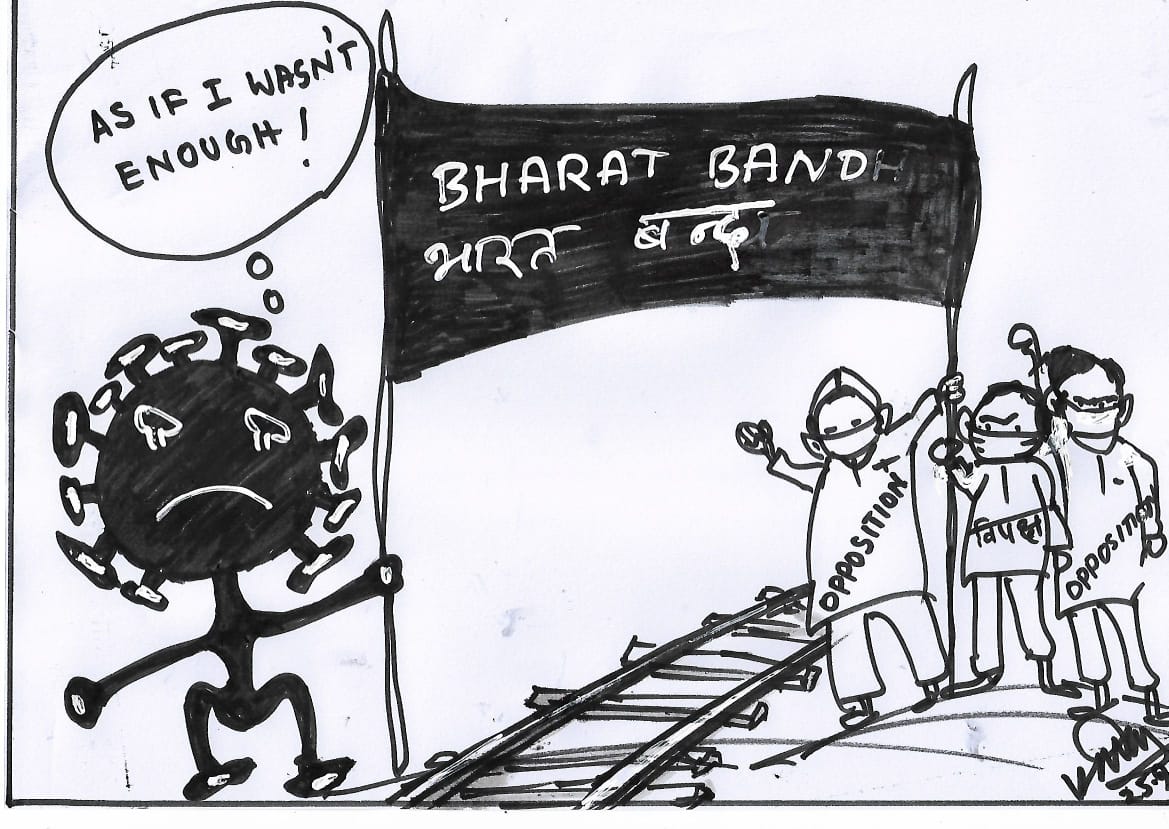 AS IF I WASN'T
ENOUGH!
BHARAT BANDH
भारत बन्द
OPPOSITION
विपक्ष
OPPOSITION